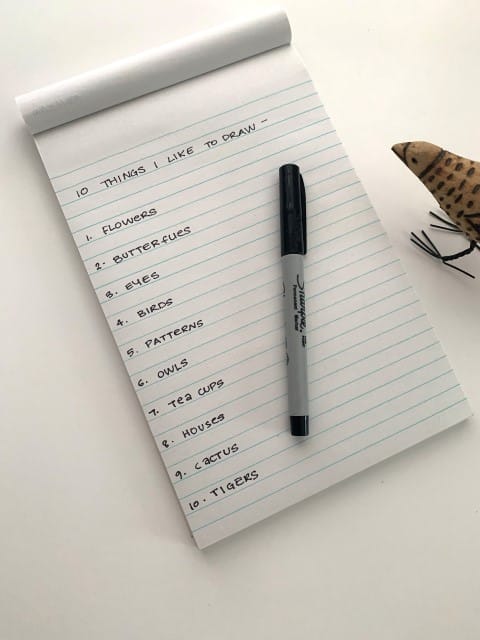 10 THINGS I LIKE TO DRAW -
1. FLOWERS
2. BUTTERFLIES
3. EYES
4. BIRDS
5. PATTERNS
6. OWLS
7. TEA CUPS
8. HOUSES
9. CACTUS
10. TIGERS
Sharpie
Permanent Marker